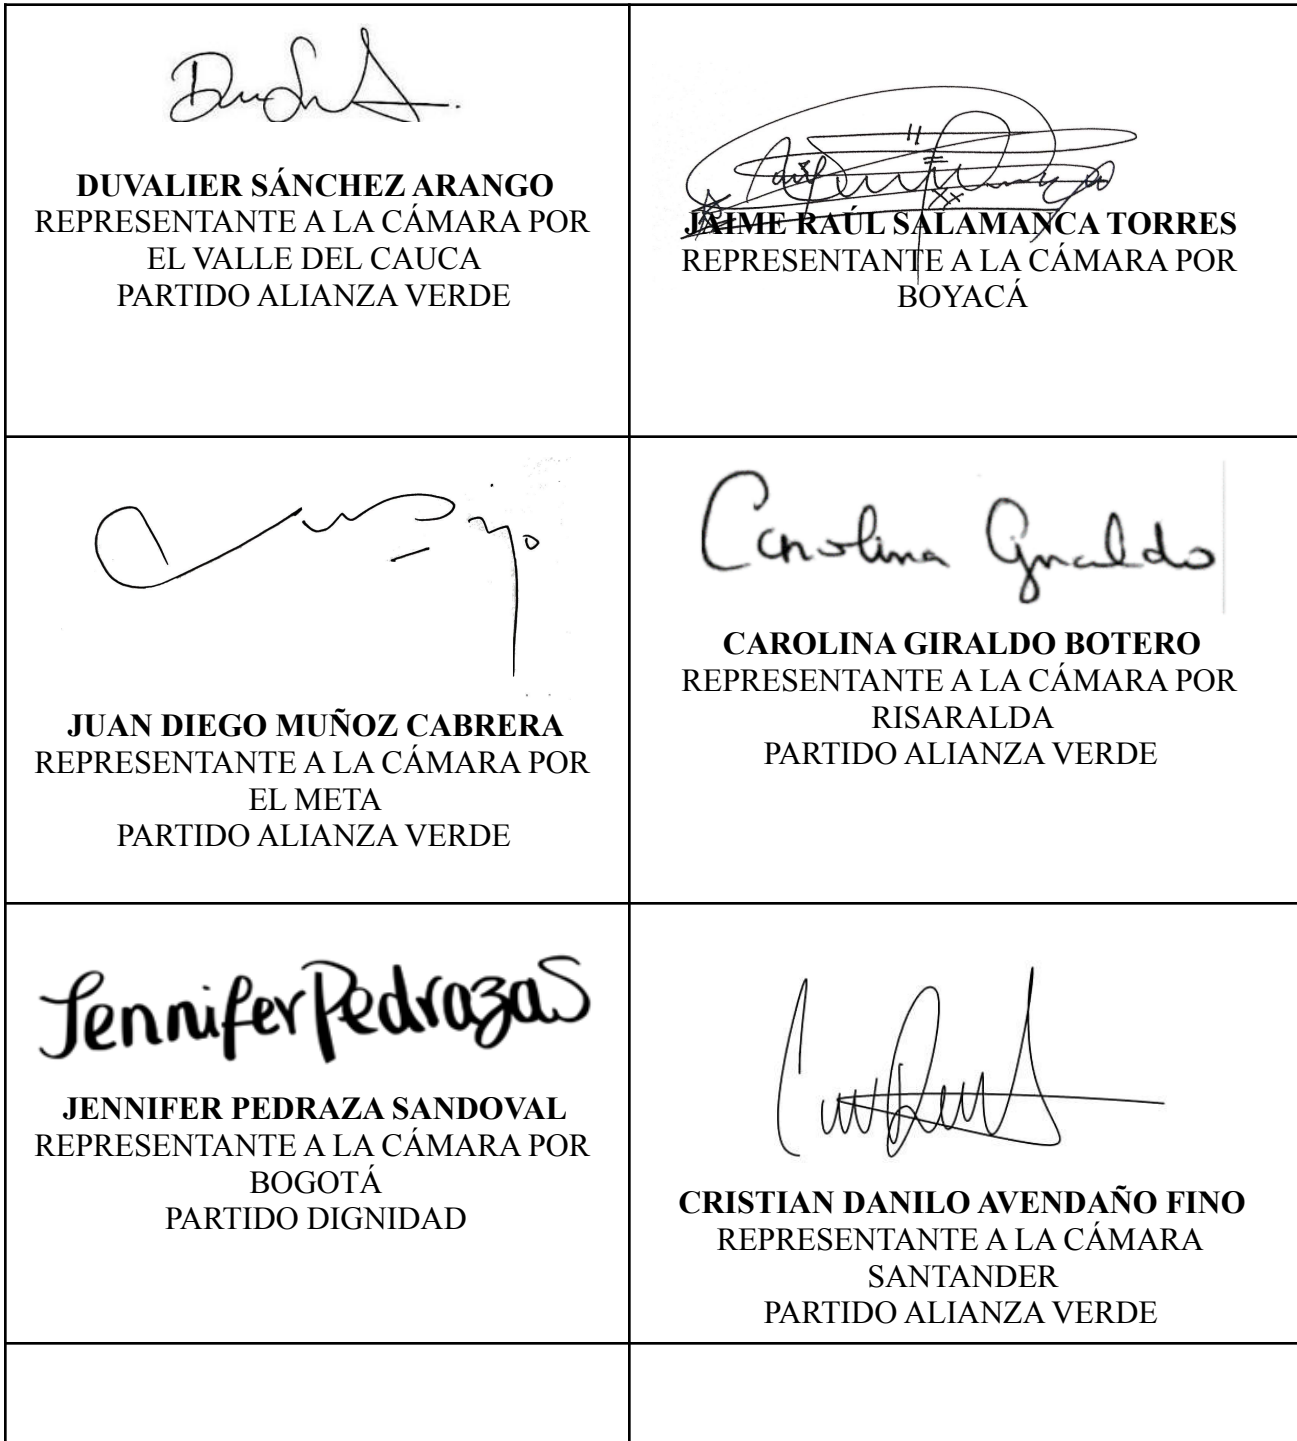 DUVALIER SÁNCHEZ ARANGO
REPRESENTANTE A LA CÁMARA POR
EL VALLE DEL CAUCA
PARTIDO ALIANZA VERDE
JAIME RAÚL SALAMANCA TORRES
REPRESENTANTE A LA CÁMARA POR
BOYACÁ
JUAN DIEGO MUÑOZ CABRERA
REPRESENTANTE A LA CÁMARA POR
EL META
PARTIDO ALIANZA VERDE
Carolina Giraldo
CAROLINA GIRALDO BOTERO
REPRESENTANTE A LA CÁMARA POR
RISARALDA
PARTIDO ALIANZA VERDE
Jennifer Pedraza S
JENNIFER PEDRAZA SANDOVAL
REPRESENTANTE A LA CÁMARA POR
BOGOTÁ
PARTIDO DIGNIDAD
CRISTIAN DANILO AVENDAÑO FINO
REPRESENTANTE A LA CÁMARA
SANTANDER
PARTIDO ALIANZA VERDE